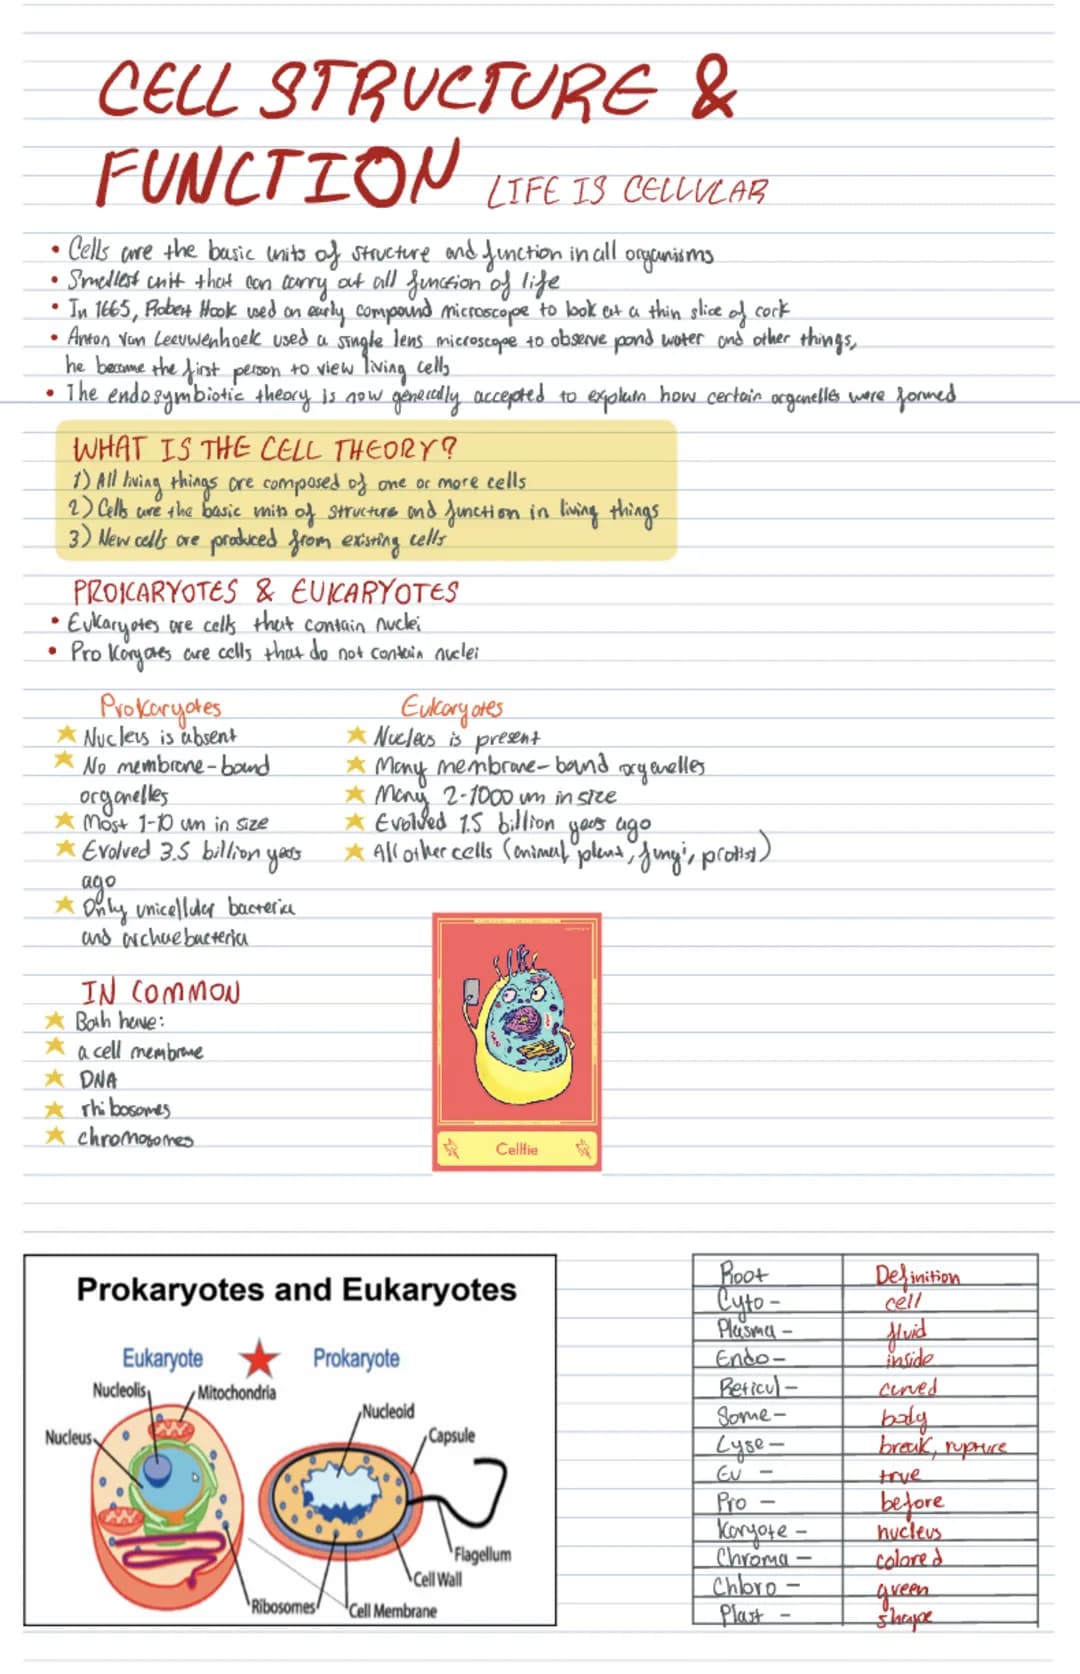 CELL STRUCTURE &
FUNCTION LIFE IS CELLULAR
• Cells are the basic units of structure and function in all organisms
• Smallest unit that can carry out all function of life
• In 1665, Robert Hook used an early compound microscope to look at a thin slice of cork
• Anton Van Leeuwenhoek used a single lens microscope to observe pond water and other things,
he became the first person to view living cells
• The endosymbiotic theory is now generally accepted to explain how certain organelles were formed
WHAT IS THE CELL THEORY?
1) All living things are composed of one or more cells
2) Cells are the basic units of structure and function in living things
3) New cells are produced from existing cells
PROKARYOTES & EUKARYOTES
• Eukaryotes are cells that contain nuclei
• Pro Karyotes are cells that do not contain nuclei
Prokaryotes
★ Nucleus is absent
★ No membrane-bound
organelles
★ Most 1-10 um in size
★ Evolved 3.5 billion years
ago
★ Only unicellular bacteria
and archaebacteria
Eukaryotes
★ Nucleus is present
★ Many membrane-bound organelles
★ Many 2-1000 um in size
★ Evolved 1.5 billion years ago
★ All other cells (animal, plant, fungi, protist)
IN COMMON
★ Both have:
★ a cell membrane
★ DNA
★ rhibosomes
★ chromosomes
Cellfie
Prokaryotes and Eukaryotes
Eukaryote ★ Prokaryote
Nucleolis
Mitochondria
Nucleus
Nucleoid
Capsule
Flagellum
Cell Wall
Ribosomes
Cell Membrane
Root Definition
Cyto - cell
Plasma - fluid
Endo - inside
Reticul - curved
Some - body
Lyse - break, rupture
Eu - true
Pro - before
Karyote - nucleus
Chroma - colored
Chloro - green
Plast - shape